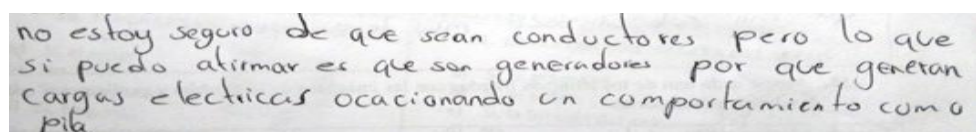 no estoy seguro de que sean conductores pero lo que
si puedo afirmar es que son generadores por que generan
cargas electricas ocacionando un comportamiento como
pila